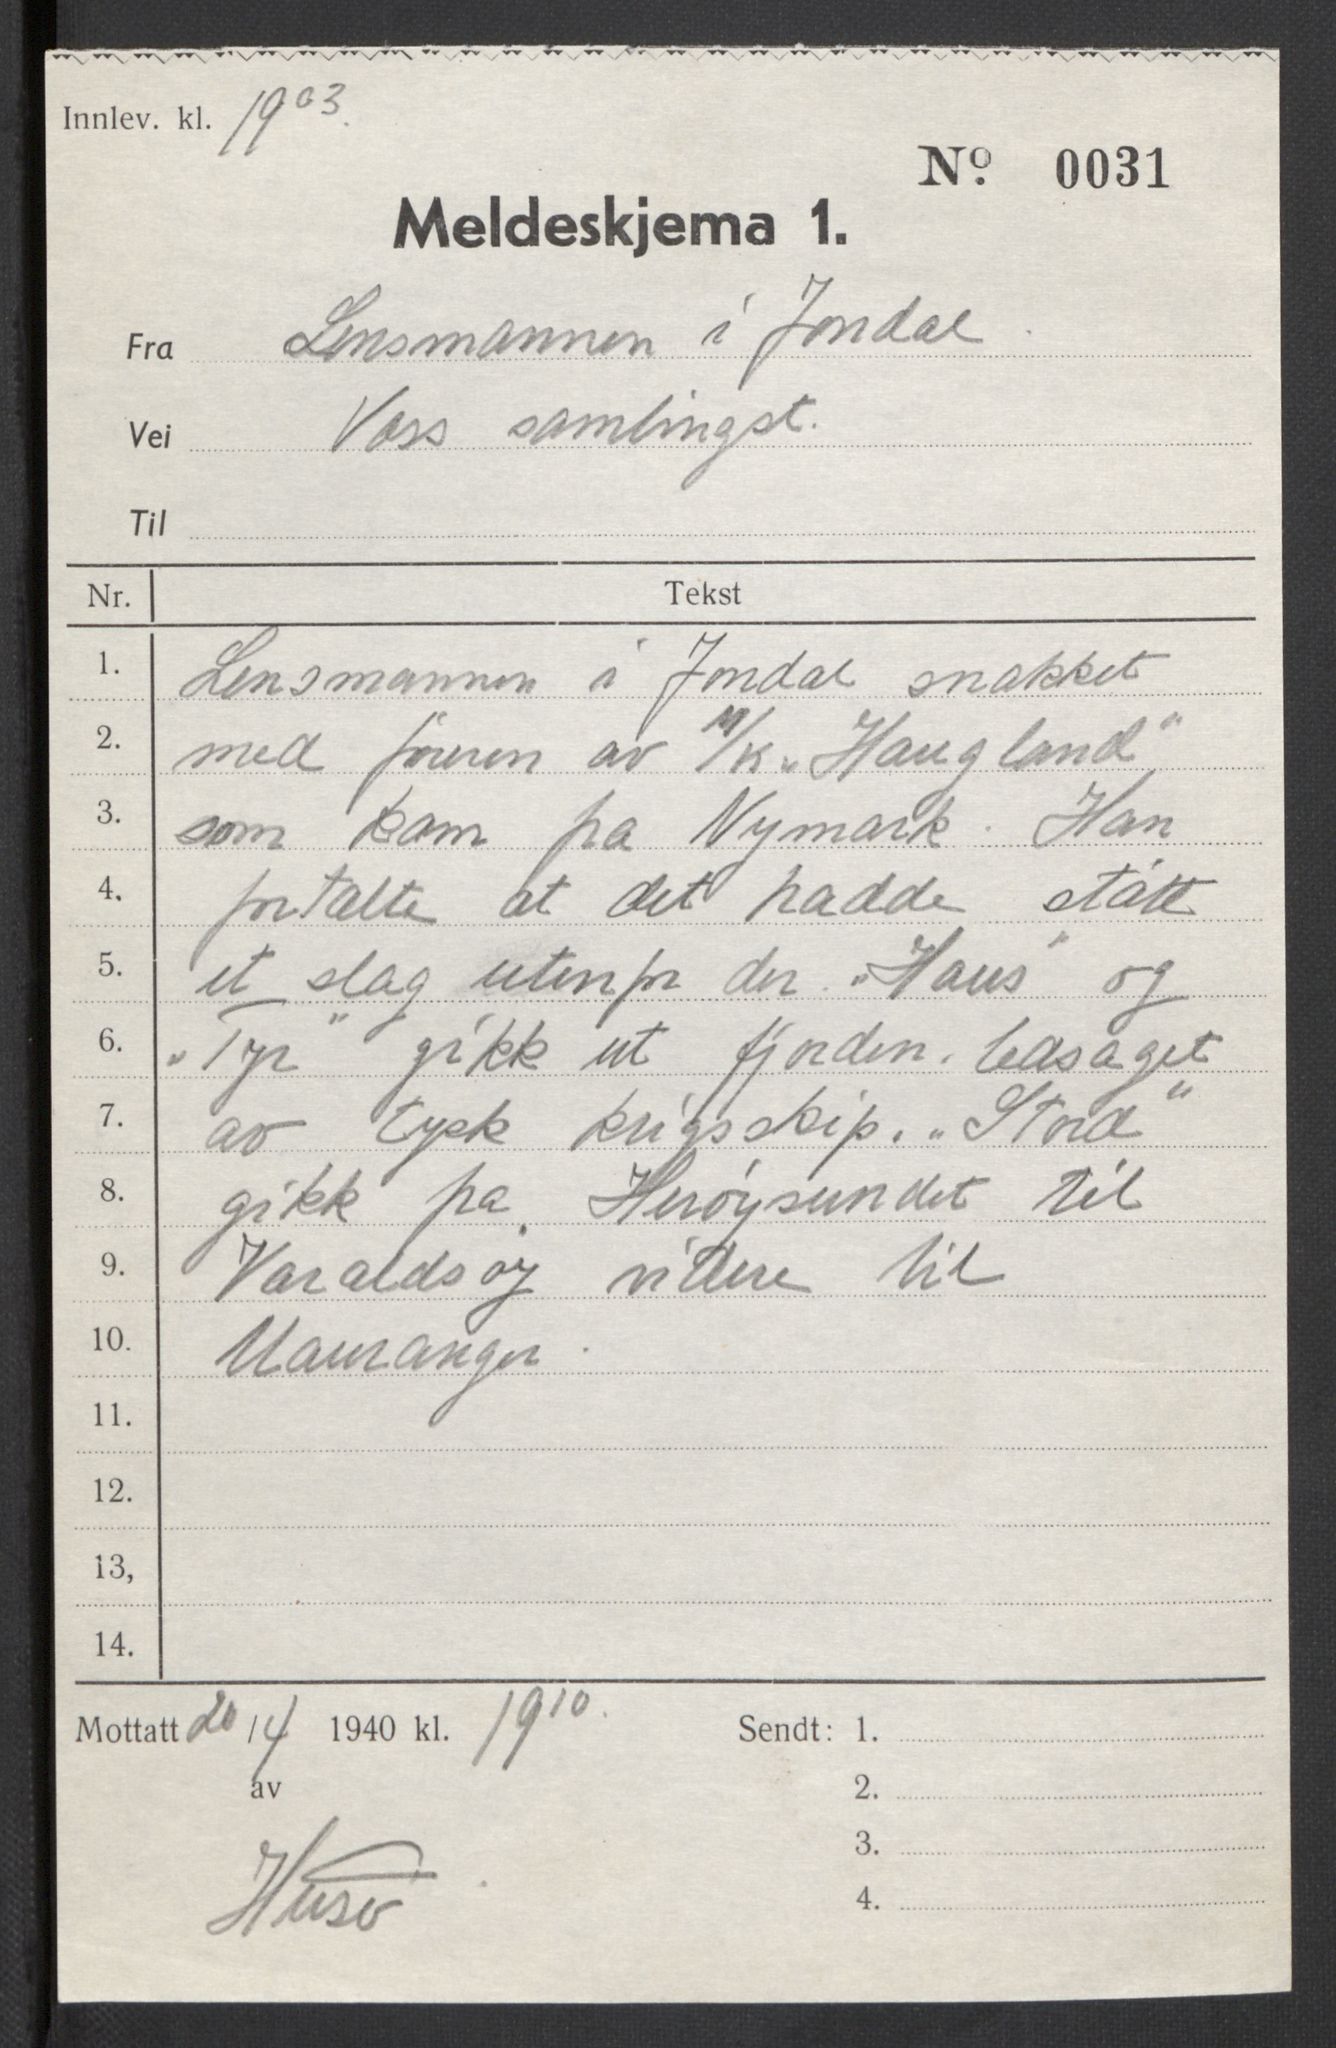 Innlev. kl. 19⁰³.
Nº 0031
Meldeskjema 1.
Fra Lensmannen i Jondal
Vei Voss samlingst.
Til
Nr. Tekst
1. Lensmannen i Jondal snakket
2. med föreren av M/K „Haugland”
3. som kom fra Nymark. Han
4. fortalte at det hadde stått
5. et slag utenfor der. „Haus” og
6. „Tyr” gikk ut fjorden. ledsaget
7. av tysk krigsskip. „Stord”
8. gikk fra Heröysundet til
9. Varaldsöy videre til
10. Mauranger.
11.
12.
13,
14.
Mottatt 20/4 1940 kl. 19¹⁰.
av
Sendt: 1.
2.
3.
4.